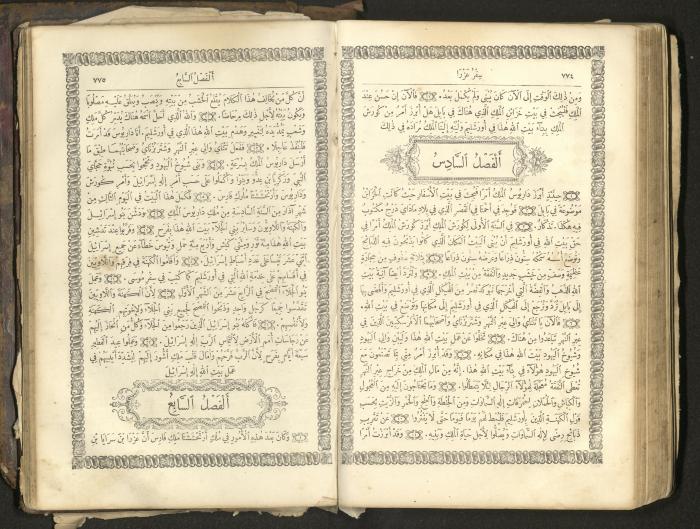 ٧٧٤ سِفْرُ عَزْرَا
وَمِنْ ذٰلِكَ الْوَقْتِ إِلَى الْآنَ كَانَ يُبْنَى وَلَمْ يَكْمُلْ بَعْدُ. فَالْآنَ إِنْ حَسُنَ عِنْدَ
الْمَلِكِ فَلْيُبْحَثْ فِي بَيْتِ خَزَائِنِ الْمَلِكِ الَّذِي هُنَاكَ فِي بَابِلَ هَلْ أَبْرَزَ أَمْرٌ مِنْ كُورَشَ
الْمَلِكِ بِبِنَاءِ بَيْتِ اللهِ هٰذَا فِي أُورَشَلِيمَ وَلْيُنْهِ إِلَيْنَا الْمَلِكُ مُرَادَهُ فِي ذٰلِكَ
أَلْفَصْلُ السَّادِسُ
حِينَئِذٍ أَبْرَزَ دَارِيُوسُ الْمَلِكُ أَمْرًا فَبُحِثَ فِي بَيْتِ الْأَسْفَارِ حَيْثُ كَانَتِ الْخَزَائِنُ
مَوْضُوعَةً فِي بَابِلَ فَوُجِدَ فِي أَحْمَتَا فِي الْقَصْرِ الَّذِي فِي بِلَادِ مَادَايَ دَرْجٌ مَكْتُوبٌ
فِيهِ هٰكَذَا. تَذْكَارٌ. فِي السَّنَةِ الْأُولَى لِكُورَشَ الْمَلِكِ أَبْرَزَ كُورَشُ الْمَلِكُ أَمْرًا فِي
حَقِّ بَيْتِ اللهِ فِي أُورَشَلِيمَ أَنْ يُبْنَى الْبَيْتُ الْمَكَانُ الَّذِي كَانُوا يَذْبَحُونَ فِيهِ الذَّبَائِحَ
وَتُوضَعُ أُسُسُهُ سَمْكُهُ سِتُّونَ ذِرَاعًا وَعَرْضُهُ سِتُّونَ ذِرَاعًا بِثَلَاثَةِ سَافَاتٍ مِنْ حِجَارَةٍ
ضَخْمَةٍ وَسَافٍ مِنْ خَشَبٍ جَدِيدٍ وَالنَّفَقَةُ مِنْ بَيْتِ الْمَلِكِ. وَلْتُرَدَّ أَيْضًا آنِيَةُ بَيْتِ
اللهِ الذَّهَبُ وَالْفِضَّةُ الَّتِي أَخْرَجَهَا نَبُوكَدْنَصَّرُ مِنَ الْهَيْكَلِ الَّذِي فِي أُورَشَلِيمَ وَأَفْضَى بِهَا
إِلَى بَابِلَ تُرَدُّ وَتَرْجِعُ إِلَى الْهَيْكَلِ الَّذِي فِي أُورَشَلِيمَ إِلَى مَكَانِهَا وَتُوضَعُ فِي بَيْتِ اللهِ.
فَالْآنَ يَا تَتْنَايُ وَالِيَ عِبْرِ النَّهْرِ وَشَتَرْبُوزْنَايُ وَأَصْحَابَهُمَا الْأَفَرْسَكِيِّينَ الَّذِينَ فِي
عِبْرِ النَّهْرِ تَبَاعَدُوا مِنْ هُنَاكَ. تَخَلَّوْا عَنْ عَمَلِ بَيْتِ اللهِ هٰذَا وَلْيَبْنِ وَالِي الْيَهُودِ
وَشُيُوخُ الْيَهُودِ بَيْتَ اللهِ هٰذَا فِي مَكَانِهِ. وَقَدْ أُبْرِزَ أَمْرٌ مِنِّي بِمَا تَصْنَعُونَ مَعَ
شُيُوخِ الْيَهُودِ هٰؤُلَاءِ فِي بِنَاءِ بَيْتِ اللهِ هٰذَا. إِنَّهُ مِنْ مَالِ الْمَلِكِ مِنْ خَرَاجِ عِبْرِ النَّهْرِ
تُعْطَى النَّفَقَةُ مُعَجَّلَةً لِهٰؤُلَاءِ الرِّجَالِ لِئَلَّا يَتَعَطَّلُوا. وَمَا يَحْتَاجُونَ إِلَيْهِ مِنَ الْعُجُولِ
وَالْكِبَاشِ وَالْحُمْلَانِ لِمُحْرَقَاتِ إِلٰهِ السَّمَاوَاتِ وَمِنَ الْحِنْطَةِ وَالْمِلْحِ وَالْخَمْرِ وَالزَّيْتِ بِحَسَبِ
قَوْلِ الْكَهَنَةِ الَّذِينَ بِأُورَشَلِيمَ فَلْيُعْطَ لَهُمْ يَوْمًا فَيَوْمًا حَتَّى لَا يَفْتُرُوا عَنْ تَقْرِيبِ
ذَبَائِحِ رِضًى لِإِلٰهِ السَّمَاوَاتِ وَيُصَلُّوا لِأَجْلِ حَيَاةِ الْمَلِكِ وَبَنِيهِ. وَقَدْ أَبْرَزْتُ أَمْرًا
أَلْفَصْلُ السَّابِعُ ٧٧٥
أَنَّ كُلَّ مَنْ يُخَالِفُ هٰذَا الْكَلَامَ يُقْلَعُ الْخَشَبُ مِنْ بَيْتِهِ وَيُنْصَبُ وَيُعَلَّقُ عَلَيْهِ مَصْلُوبًا
وَيَكُونُ بَيْتُهُ لِأَجْلِ ذٰلِكَ مِرْحَاضًا. وَاللهُ الَّذِي أَحَلَّ اسْمَهُ هُنَاكَ يُدَمِّرُ كُلَّ مَلِكٍ
وَشَعْبٍ يَمُدُّ يَدَهُ لِتَغْيِيرِ وَهَدْمِ بَيْتِ اللهِ هٰذَا الَّذِي فِي أُورَشَلِيمَ. أَنَا دَارِيُوسَ قَدْ أَبْرَزْتُ
فَلْيُنَفَّذْ عَاجِلًا. فَفَعَلَ تَتْنَايُ وَالِي عِبْرِ النَّهْرِ وَشَتَرْبُوزْنَايُ وَأَصْحَابُهُمَا طِبْقَ مَا
أَرْسَلَ دَارِيُوسُ الْمَلِكُ بِسُرْعَةٍ. وَبَنَى شُيُوخُ الْيَهُودِ وَنَجَحُوا بِحَسَبِ نُبُوَّةِ حَجَّايَ
النَّبِيِّ وَزَكَرِيَّا بْنِ عِدُّو وَبَنَوْا وَأَكْمَلُوا عَلَى حَسَبِ أَمْرِ إِلٰهِ إِسْرَائِيلَ وَأَمْرِ كُورَشَ
وَدَارِيُوسَ وَأَرْتَحْشَشْتَا مَلِكِ فَارِسَ. فَكَمَلَ هٰذَا الْبَيْتُ فِي الْيَوْمِ الثَّالِثِ مِنْ
شَهْرِ آذَارَ مِنَ السَّنَةِ السَّادِسَةِ مِنْ مُلْكِ دَارِيُوسَ الْمَلِكِ. وَدَشَّنَ بَنُو إِسْرَائِيلَ
وَالْكَهَنَةُ وَاللَّاوِيُّونَ وَسَائِرُ بَنِي الْجَلَاءِ بَيْتَ اللهِ هٰذَا بِفَرَحٍ. وَقَرَّبُوا عِنْدَ تَدْشِينِ
بَيْتِ اللهِ هٰذَا مِئَةَ ثَوْرٍ وَمِئَتَيْ كَبْشٍ وَأَرْبَعَ مِئَةِ حَمَلٍ وَتُيُوسَ خَطَاءٍ عَنْ جَمِيعِ إِسْرَائِيلَ
اثْنَيْ عَشَرَ تَيْسًا عَلَى عَدَدِ أَسْبَاطِ إِسْرَائِيلَ. وَأَقَامُوا الْكَهَنَةَ فِي فِرَقِهِمْ وَاللَّاوِيِّينَ
فِي أَقْسَامِهِمْ عَلَى خِدْمَةِ اللهِ الَّتِي فِي أُورَشَلِيمَ كَمَا كُتِبَ فِي سِفْرِ مُوسَى. وَعَمِلَ
بَنُو الْجَلَاءِ الْفِصْحَ فِي الرَّابِعَ عَشَرَ مِنَ الشَّهْرِ الْأَوَّلِ لِأَنَّ الْكَهَنَةَ وَاللَّاوِيِّينَ
تَقَدَّسُوا جَمِيعًا كَرَجُلٍ وَاحِدٍ وَذَبَحُوا الْفِصْحَ لِجَمِيعِ بَنِي الْجَلَاءِ وَلِإِخْوَتِهِمِ الْكَهَنَةِ
وَلِأَنْفُسِهِمْ. فَأَكَلَهُ بَنُو إِسْرَائِيلَ الَّذِينَ رَجَعُوا مِنَ الْجَلَاءِ وَكُلُّ مَنِ انْحَازَ إِلَيْهِمْ
عَنْ رَجَاسَاتِ أُمَمِ الْأَرْضِ لِالْتِمَاسِ الرَّبِّ إِلٰهِ إِسْرَائِيلَ. وَعَمِلُوا عِيدَ الْفَطِيرِ
سَبْعَةَ أَيَّامٍ بِفَرَحٍ لِأَنَّ الرَّبَّ فَرَّحَهُمْ وَأَمَالَ قَلْبَ مَلِكِ أَشُّورَ إِلَيْهِمْ لِتَشْدِيدِ أَيْدِيهِمْ فِي
عَمَلِ بَيْتِ اللهِ إِلٰهِ إِسْرَائِيلَ
أَلْفَصْلُ السَّابِعُ
وَكَانَ بَعْدَ هٰذِهِ الْأُمُورِ فِي مُلْكِ أَرْتَحْشَشْتَا مَلِكِ فَارِسَ أَنَّ عَزْرَا بْنَ سَرَايَا بْنِ